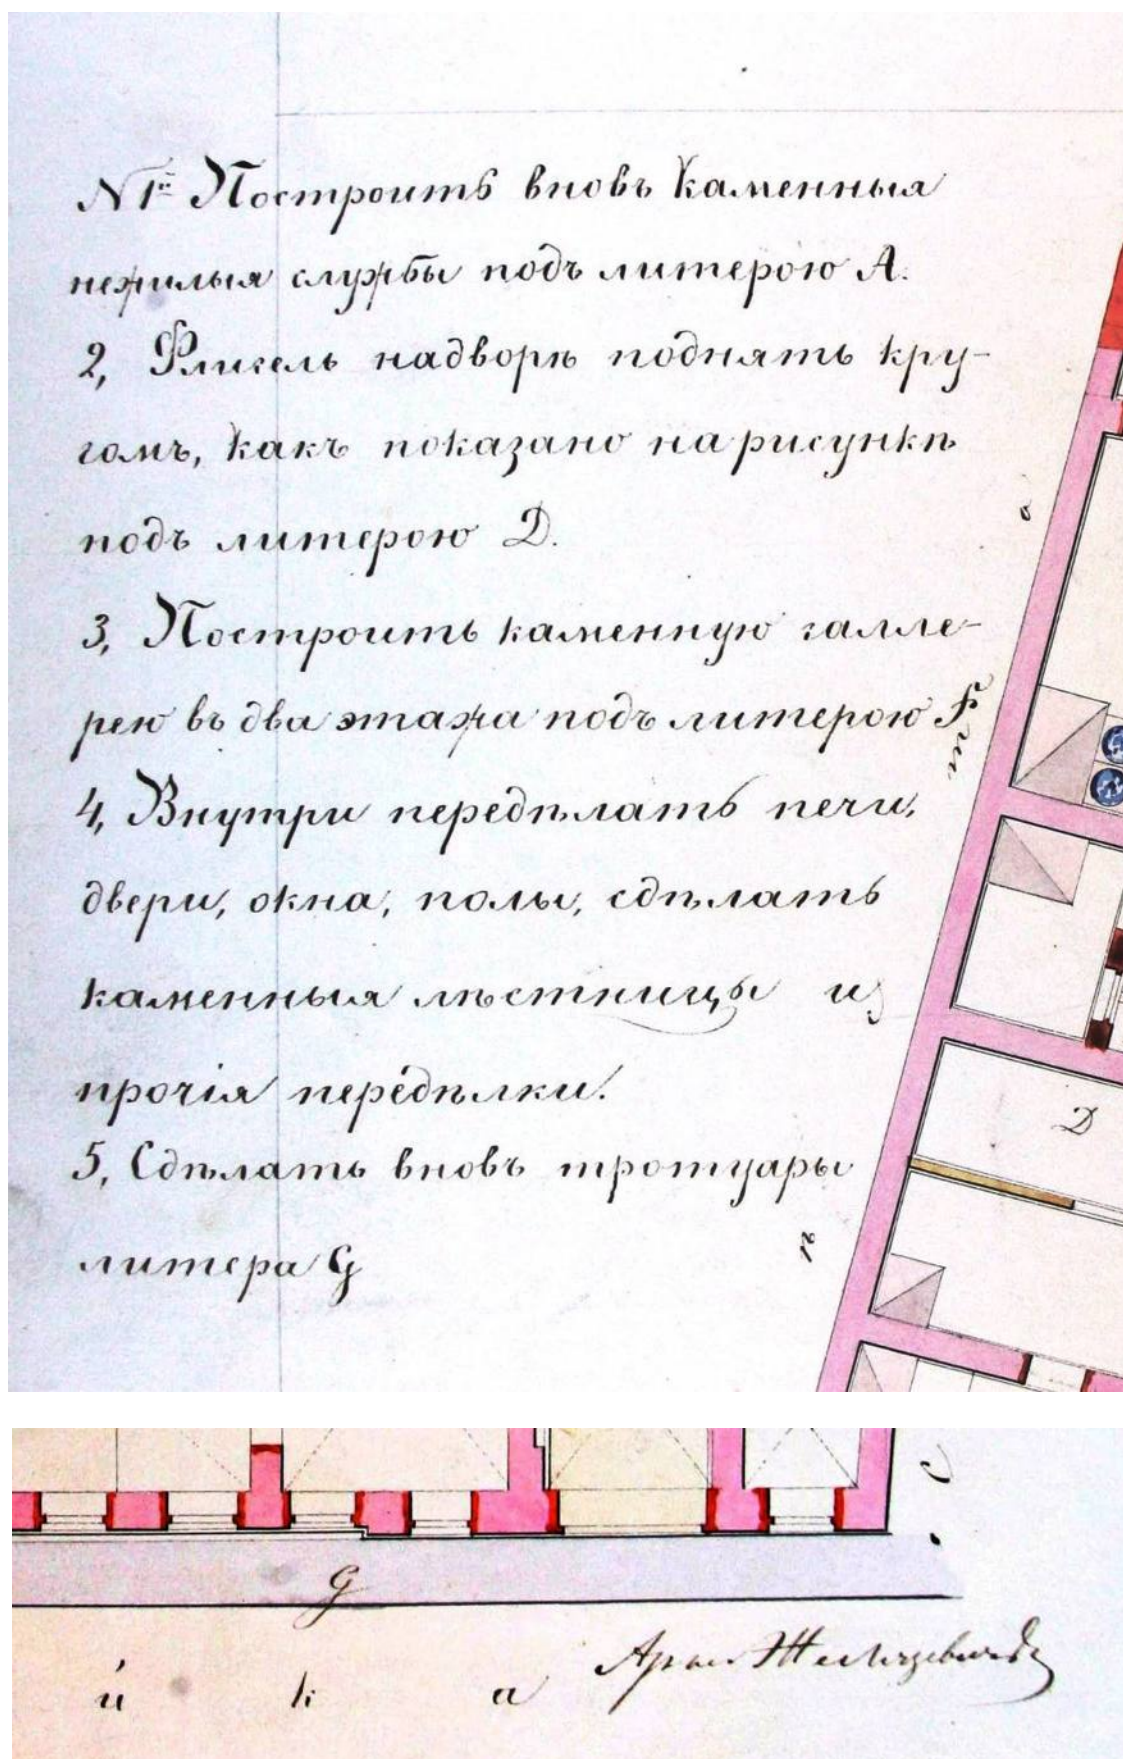 N 1й Построить вновь каменныя
нежилыя службы подъ литерою А.
2, Флигель надворѣ поднять кру-
гомъ, какъ показано на рисункѣ
подъ литерою D.
3, Построить каменную галле-
рею въ два этажа подъ литерою F
4, Внутри передѣлать печи,
двери, окна, полы, сдѣлать
каменныя лѣстницы и
прочія передѣлки.
5, Сдѣлать вновь тротуары
литера G
D
G
й к а